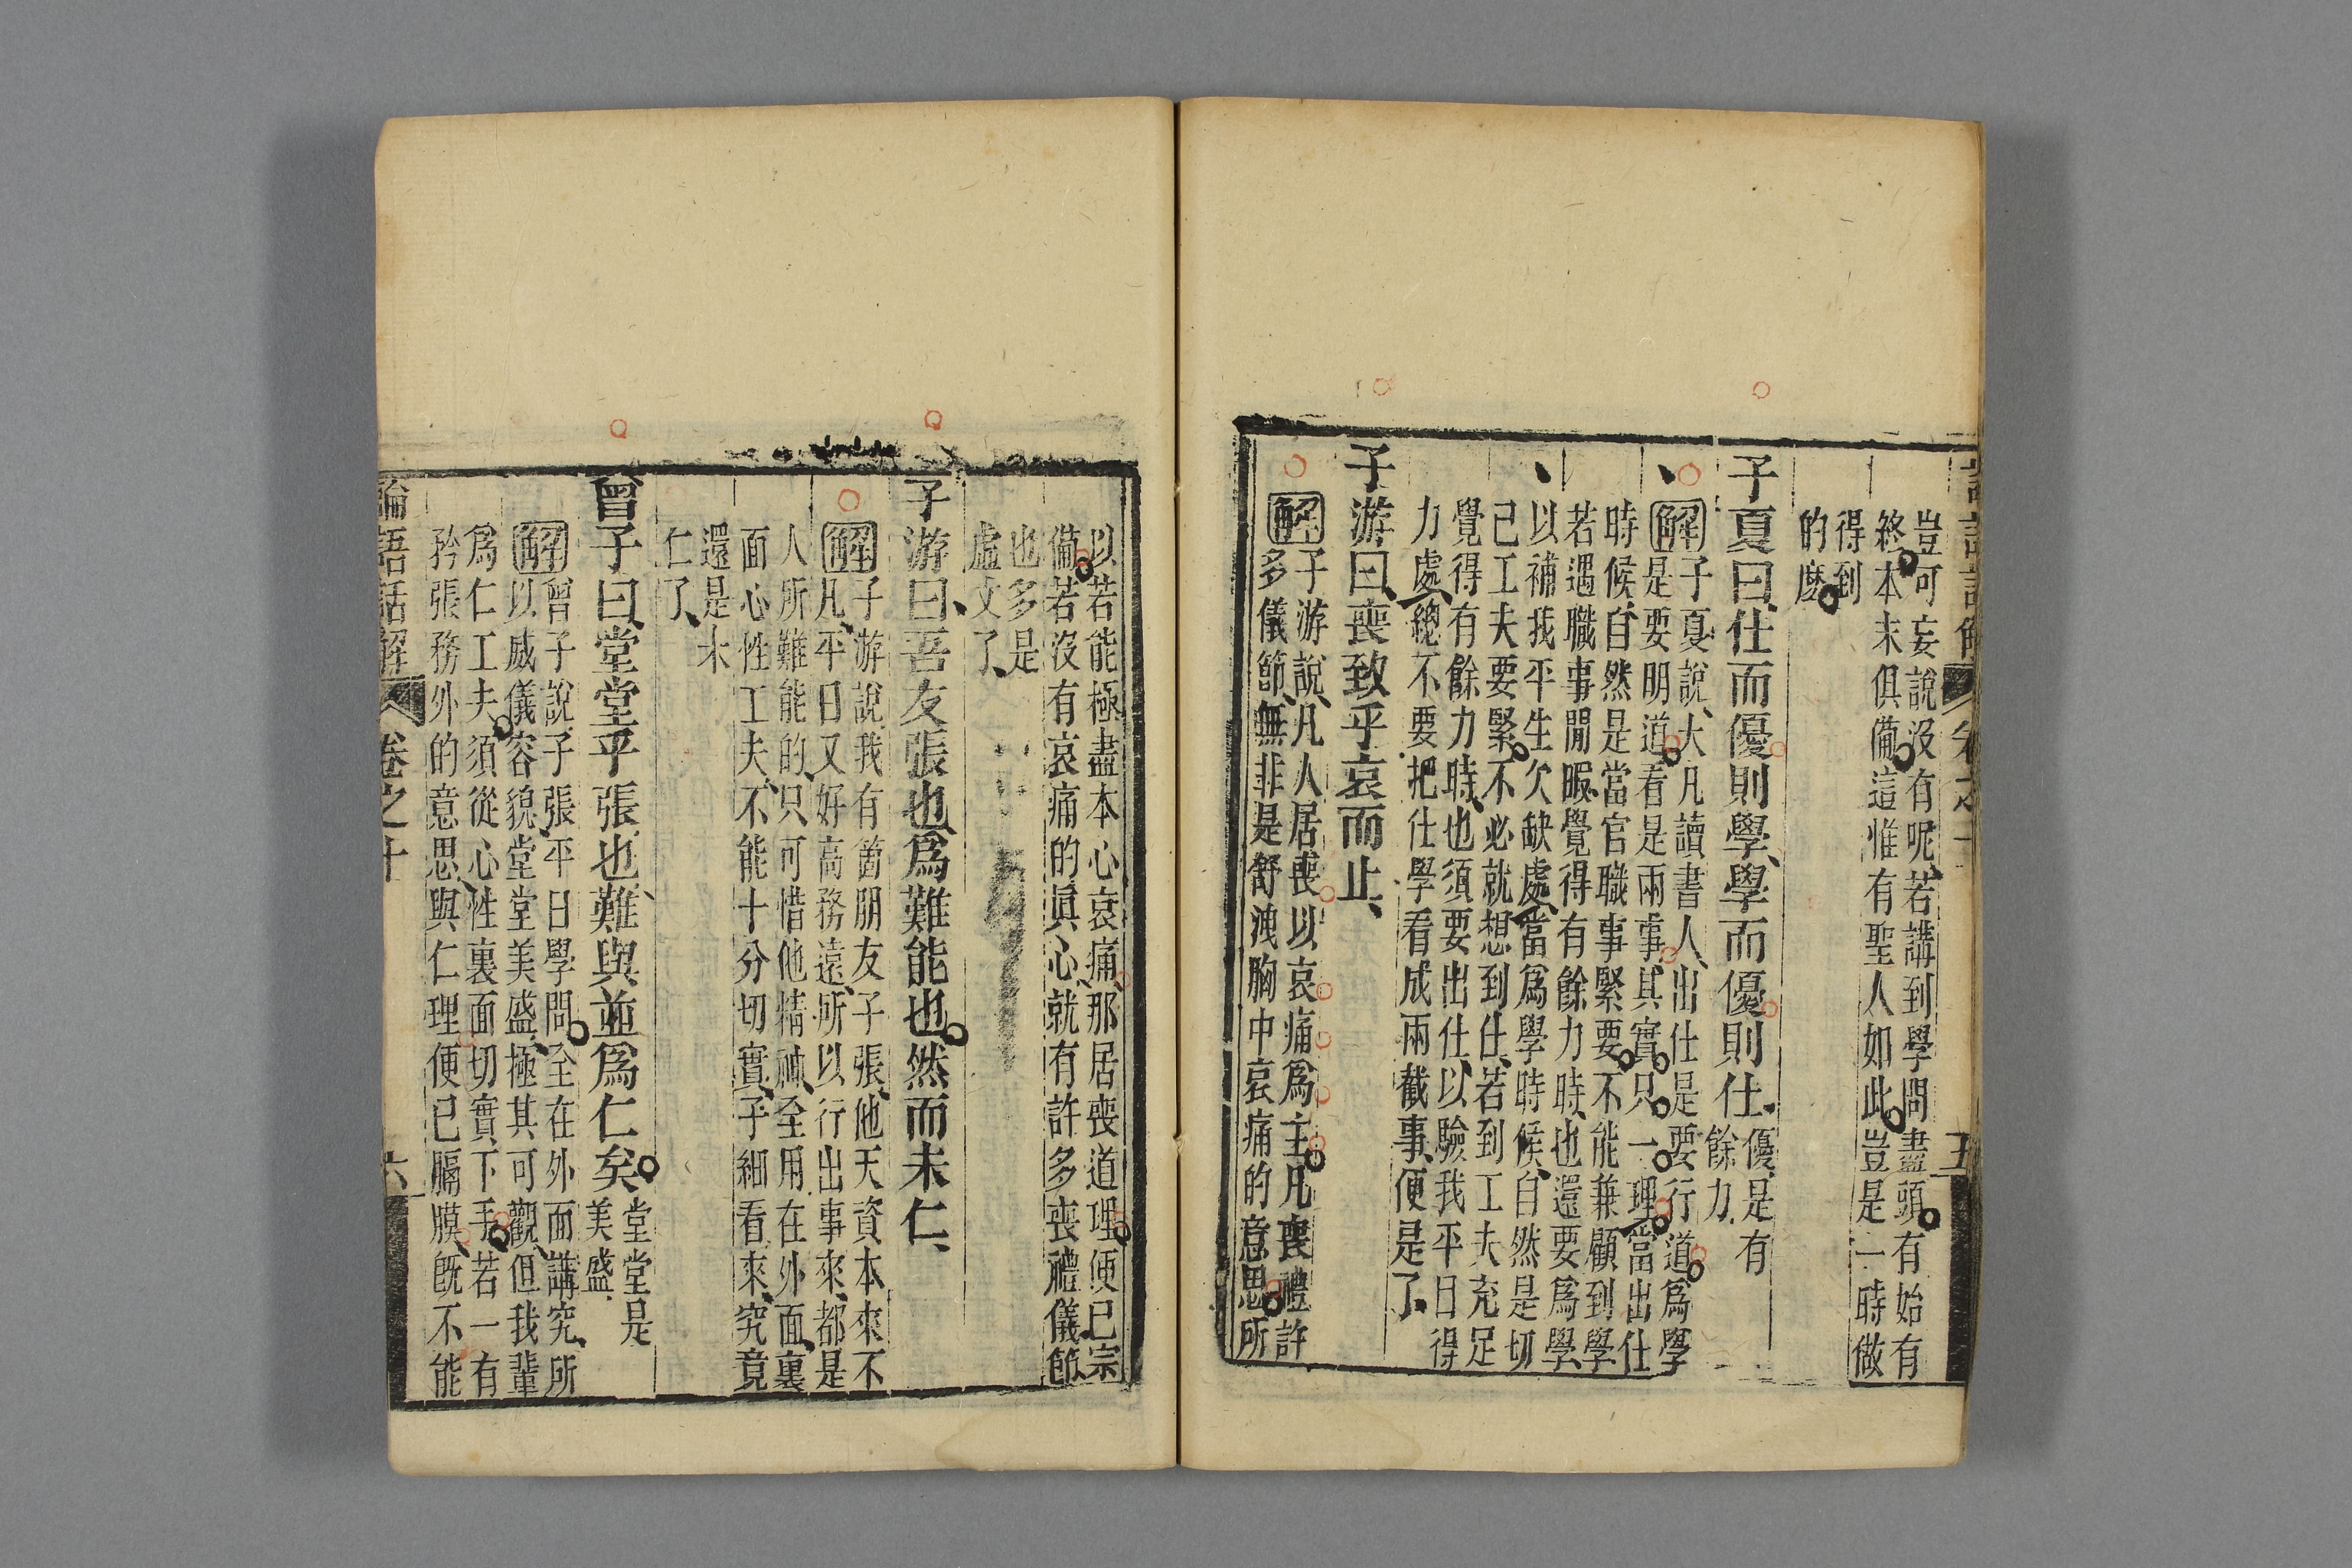 豈可妄說沒有呢若講到學問盡頭有始有
終本末俱備這惟有聖人如此豈是一時做
得到
的麽
子夏曰仕而優則學學而優則仕
優是有
餘力
解
子夏說大凡讀書人出仕是要行道爲學
是要明道看是兩事其實只一理當出仕
時候自然是當官職事緊要不能兼顧到學
若遇職事閒暇覺得有餘力時也還要爲學
以補我平生欠缺處當爲學時候自然是切
己工夫要緊不必就想到仕若到工夫充足
覺得有餘力時也須要出仕以驗我平日得
力處總不要把仕學看成兩截事便是了
子游曰喪致乎哀而止
解
子游說凡人居喪以哀痛爲主凡喪禮許
多儀節無非是舒洩胸中哀痛的意思所
五
以若能極盡本心哀痛那居喪道理便已宗
備若沒有哀痛的眞心就有許多喪禮儀節
也多是
虛文了
子游曰吾友張也爲難能也然而未仁
解
子游說我有箇朋友子張他天資本來不
凡平日又好高務遠所以行出事來都是
人所難能的只可惜他精神至用在外面裏
面心性工夫不能十分切實子細看來究竟
還是未
仁了
曾子曰堂堂乎張也難與並爲仁矣
堂堂是
美盛
解
曾子說子張平日學問全在外面講究所
以威儀容貌堂堂美盛極其可觀但我輩
爲仁工夫須從心性裏面切實下手若一有
矜張務外的意思與仁理便已膈膜旣不能
論語話解 卷之十 六